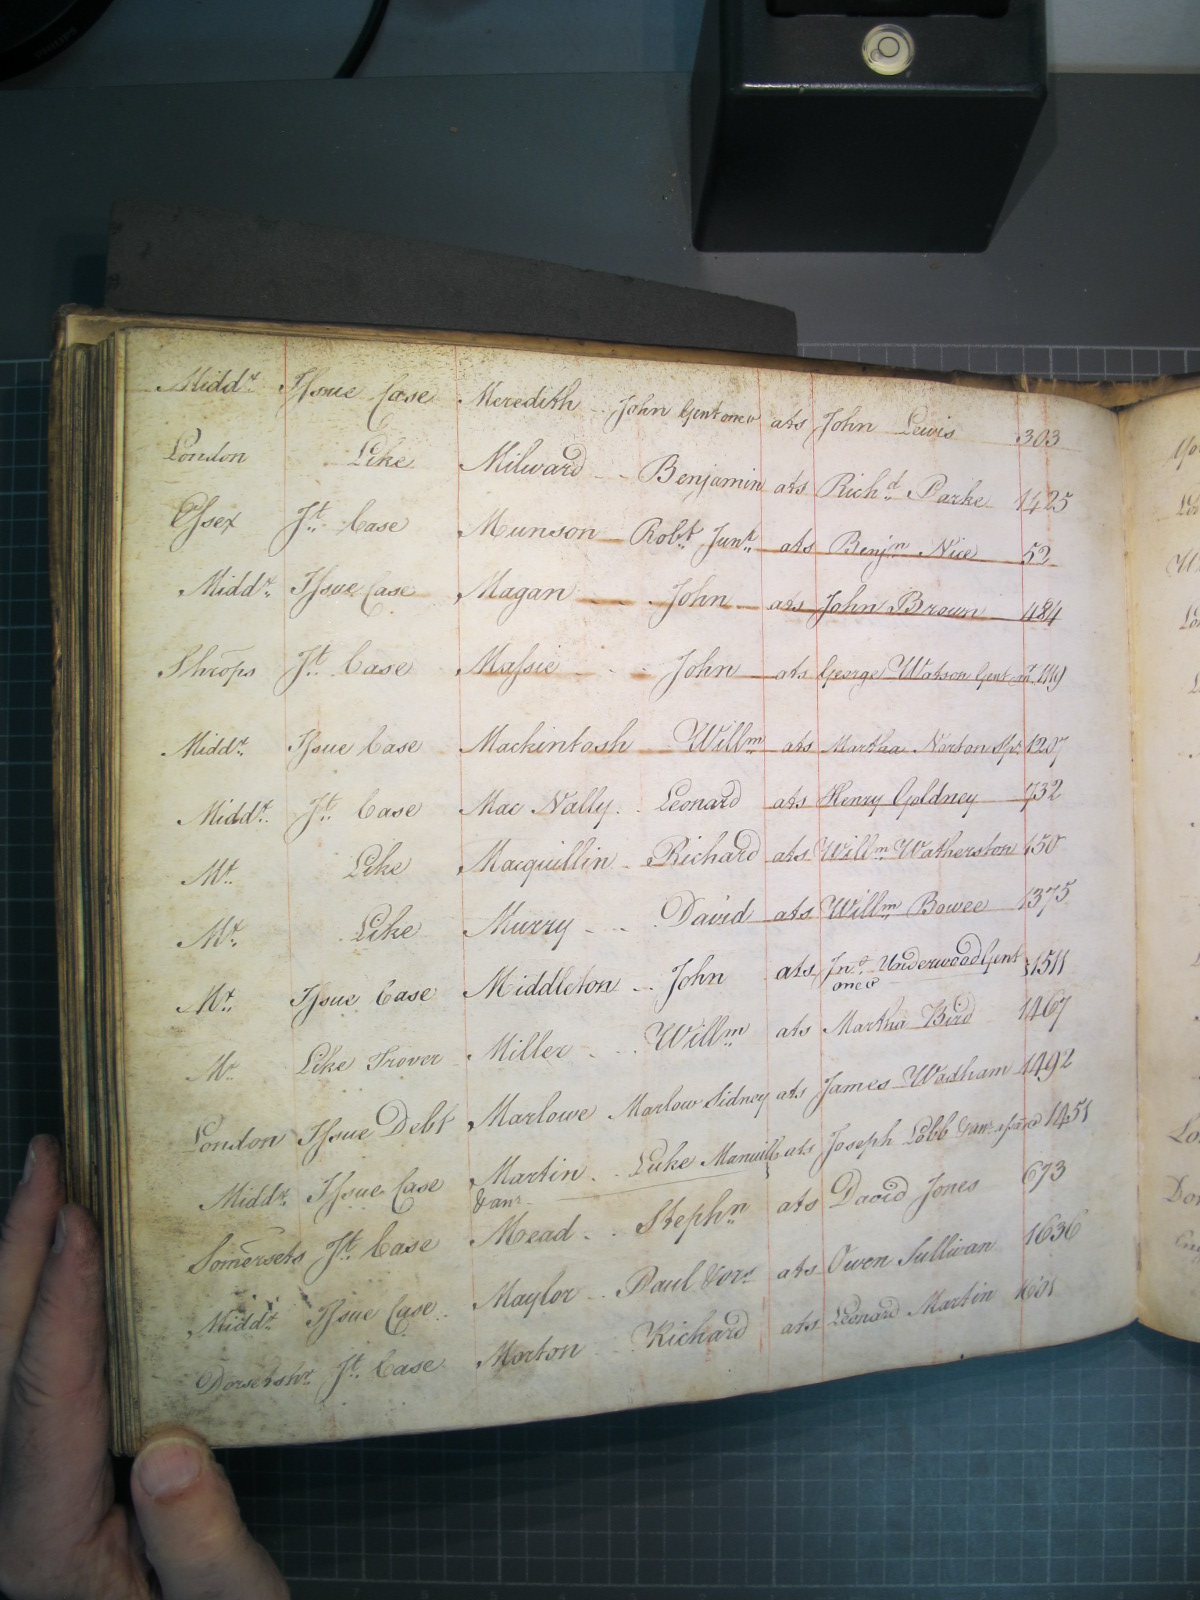 Middx Issue Case Meredith John Gent one &c ats John Lewis 303
London Like Milward Benjamin ats Richd Parke 1425
Essex Jt Case Munson Robt Junr ats Benjn Nice 52
Middx Issue Case Magan John ats John Brown 484
Shrops Jt Case Massie John ats George Watson Gent 449
Middx Issue Case Mackintosh Willm ats Martha Norton Spr 1207
Middx Jt Case Mac Nally Leonard ats Henry Goldney 732
Mx Like Macquillin Richard ats Willm Watherston 150
Mx Like Murry David ats Willm Bowee 1375
Mx Issue Case Middleton John ats Jno Underwood Gent one &c 1511
Mx Like Trover Miller Willm ats Martha Bird 1467
London Issue Debt Marlowe Marlow Sidney ats James Wadham 1492
Middx Issue Case Martin Luke Manuill & anr ats Joseph Lobb 1451
Somersets Jt Case Mead Stephn ats David Jones 673
Middx Issue Case Maylor Paul & ors ats Owen Sullivan 1636
Dorsetshr Jt Case Morton Richard ats Leonard Martin 1601